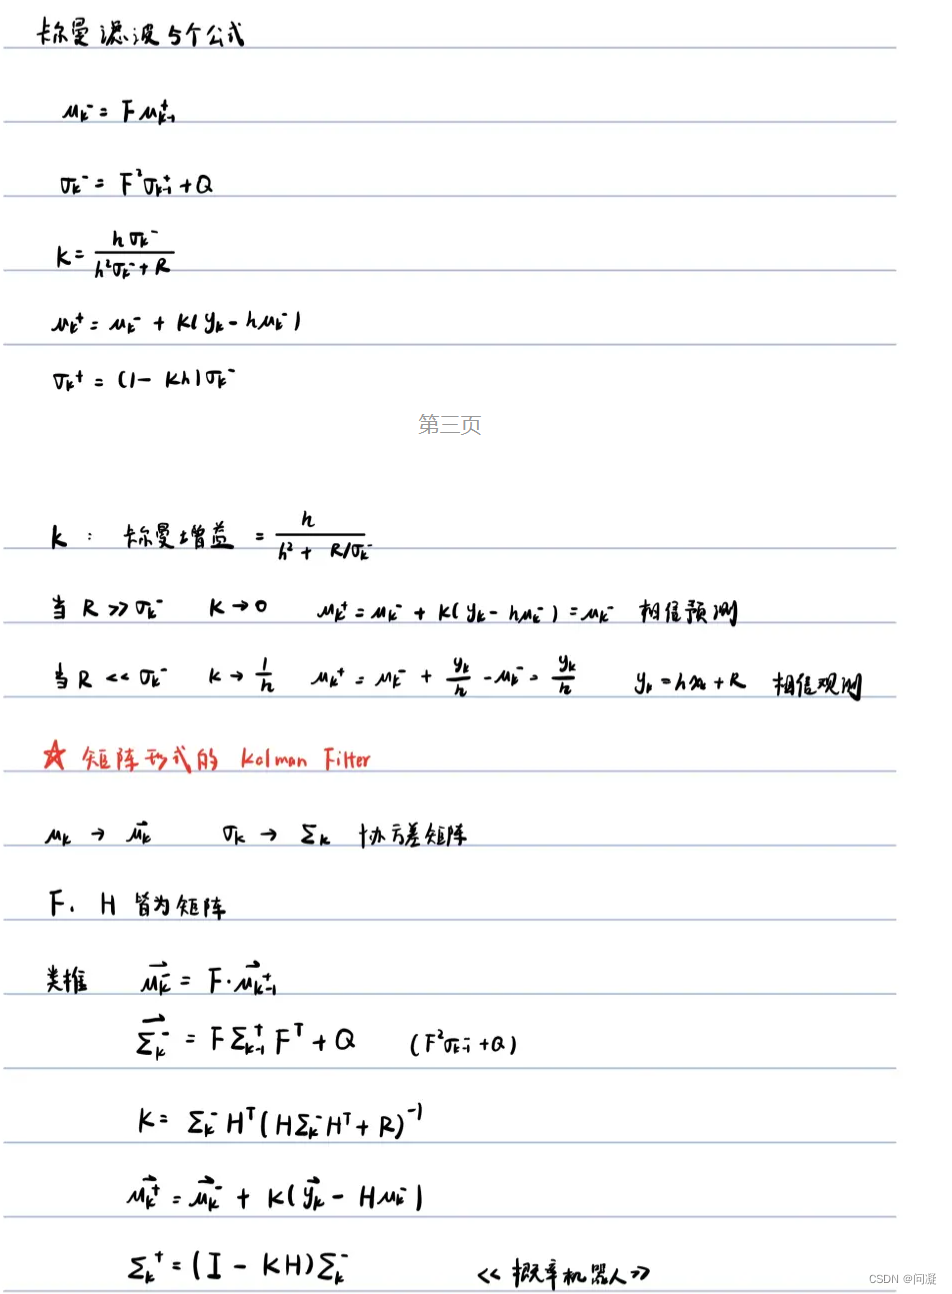 卡尔曼滤波5个公式
μₖ⁻ = Fμₖ₋₁⁺
σₖ⁻ = F²σₖ₋₁⁺ + Q
K = hσₖ⁻ / (h²σₖ⁻ + R)
μₖ⁺ = μₖ⁻ + K(yₖ - hμₖ⁻)
σₖ⁺ = (1 - Kh)σₖ⁻
第三页
K : 卡尔曼增益 = h / (h² + R/σₖ⁻)
当 R >> σₖ⁻ K → 0 μₖ⁺ = μₖ⁻ + K(yₖ - hμₖ⁻) = μₖ⁻ 相信预测
当 R << σₖ⁻ K → 1/h μₖ⁺ = μₖ⁻ + yₖ/h - μₖ⁻ = yₖ/h yₖ = hxₖ + R 相信观测
☆ 矩阵形式的 Kalman Filter
μₖ → μ⃗ₖ σₖ → Σₖ 协方差矩阵
F. H 皆为矩阵
类推 μ⃗ₖ⁻ = F·μ⃗ₖ₋₁⁺
Σ⃗ₖ⁻ = FΣₖ₋₁⁺Fᵀ + Q (F²σₖ₋₁ + Q)
K = Σₖ⁻Hᵀ(HΣₖ⁻Hᵀ + R)⁻¹
μ⃗ₖ⁺ = μ⃗ₖ⁻ + K(y⃗ₖ - Hμₖ⁻)
Σₖ⁺ = (I - KH)Σₖ⁻ <<概率机器人>>
CSDN @问凝